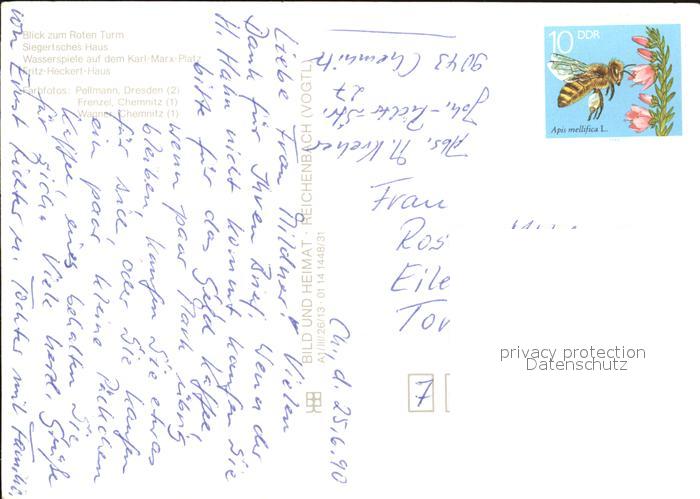 Blick zum Roten Turm
Siegertsches Haus
Wasserspiele auf dem Karl-Marx-Platz
Fritz-Heckert-Haus
Farbfotos: Pellmann, Dresden (2)
Frenzel, Chemnitz (1)
Wagner, Chemnitz (1)
BILD UND HEIMAT · REICHENBACH (VOGTL)
A1/III/26/13 · 01 14 1448/31
10 DDR
Apis mellifica L.
Abs. M. Kreher
Joh.-Richter-Str.
27
9043 Chemnitz
Frau
Ros
Eile
Tor
7
Ch. d. 25.6.90
Liebe Frau Mildner! Vielen
Dank für Ihren Brief. Wenn der
H. Hahn nicht kommt, kaufen Sie
bitte für das Geld Kaffee,
wenn paar Mark übrig
bleiben, kaufen Sie etwas
für sich, oder Sie kaufen
ein paar kleine Päckchen
Kaffee, eines behalten Sie
für sich. Viele herzl. Grüße
von Ernst Richter u. Tochter mit Familie
privacy protection
Datenschutz